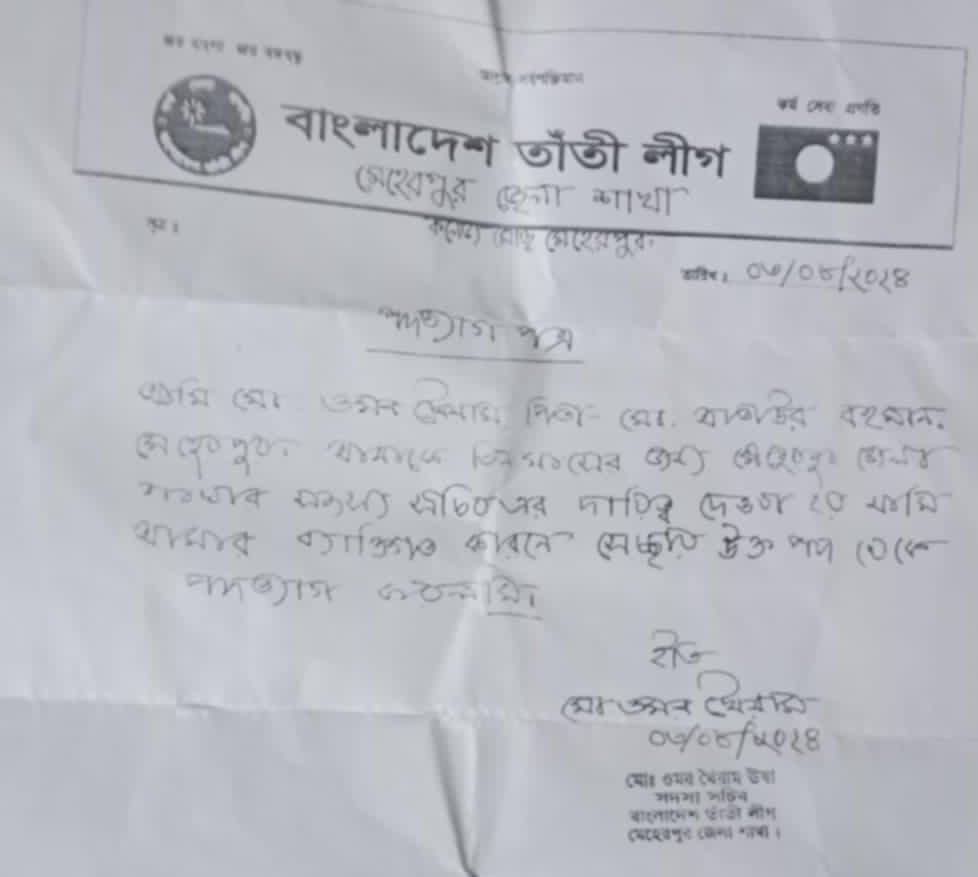 জয় বাংলা জয় বঙ্গবন্ধু
কর্ম সেবা প্রগতি
বাংলাদেশ তাঁতী লীগ
মেহেরপুর জেলা শাখা
রোড মেহেরপুর।
সূত্র :
তারিখ : ০৩/০৮/২০২৪
পদত্যাগ পত্র
আমি মো. ওমর খৈয়াম পিতা- মো. রহমান,
মেহেরপুর। আমাকে জন্য মেহেরপুর জেলা
সদস্য সচিব এর দায়িত্ব দেওয়া হয় আমি
আমার ব্যাক্তিগত কারনে উক্ত পদ থেকে
পদত্যাগ করলাম।
ইতি
মোঃ ওমর খৈয়াম
০৩/০৮/২০২৪
মোঃ ওমর খৈয়াম উষা
সদস্য সচিব
বাংলাদেশ তাঁতী লীগ
মেহেরপুর জেলা শাখা।